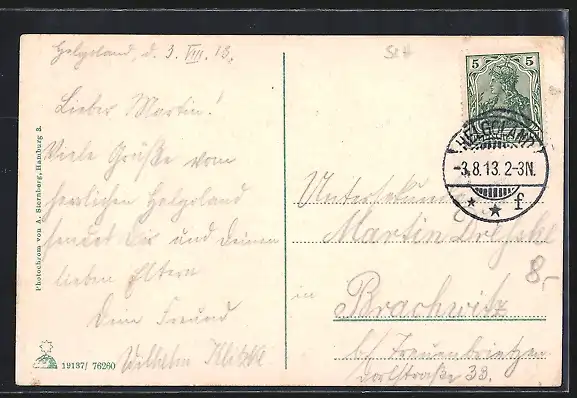 Helgoland, d. 3. VIII. 13.
Lieber Martin!
Viele Grüße vom
herrlichen Helgoland
sendet Dir und Deinen
lieben Eltern
Dein Freund
Wilhelm
Photochrom von A. Sternberg, Hamburg 3.
19137/ 76260
5 5
HELGOLAND
-3.8.13.2-3N.
* ★ f
Untersekundaner
Martin
in Brachwitz
b/ Treuenbrietzen
8,-